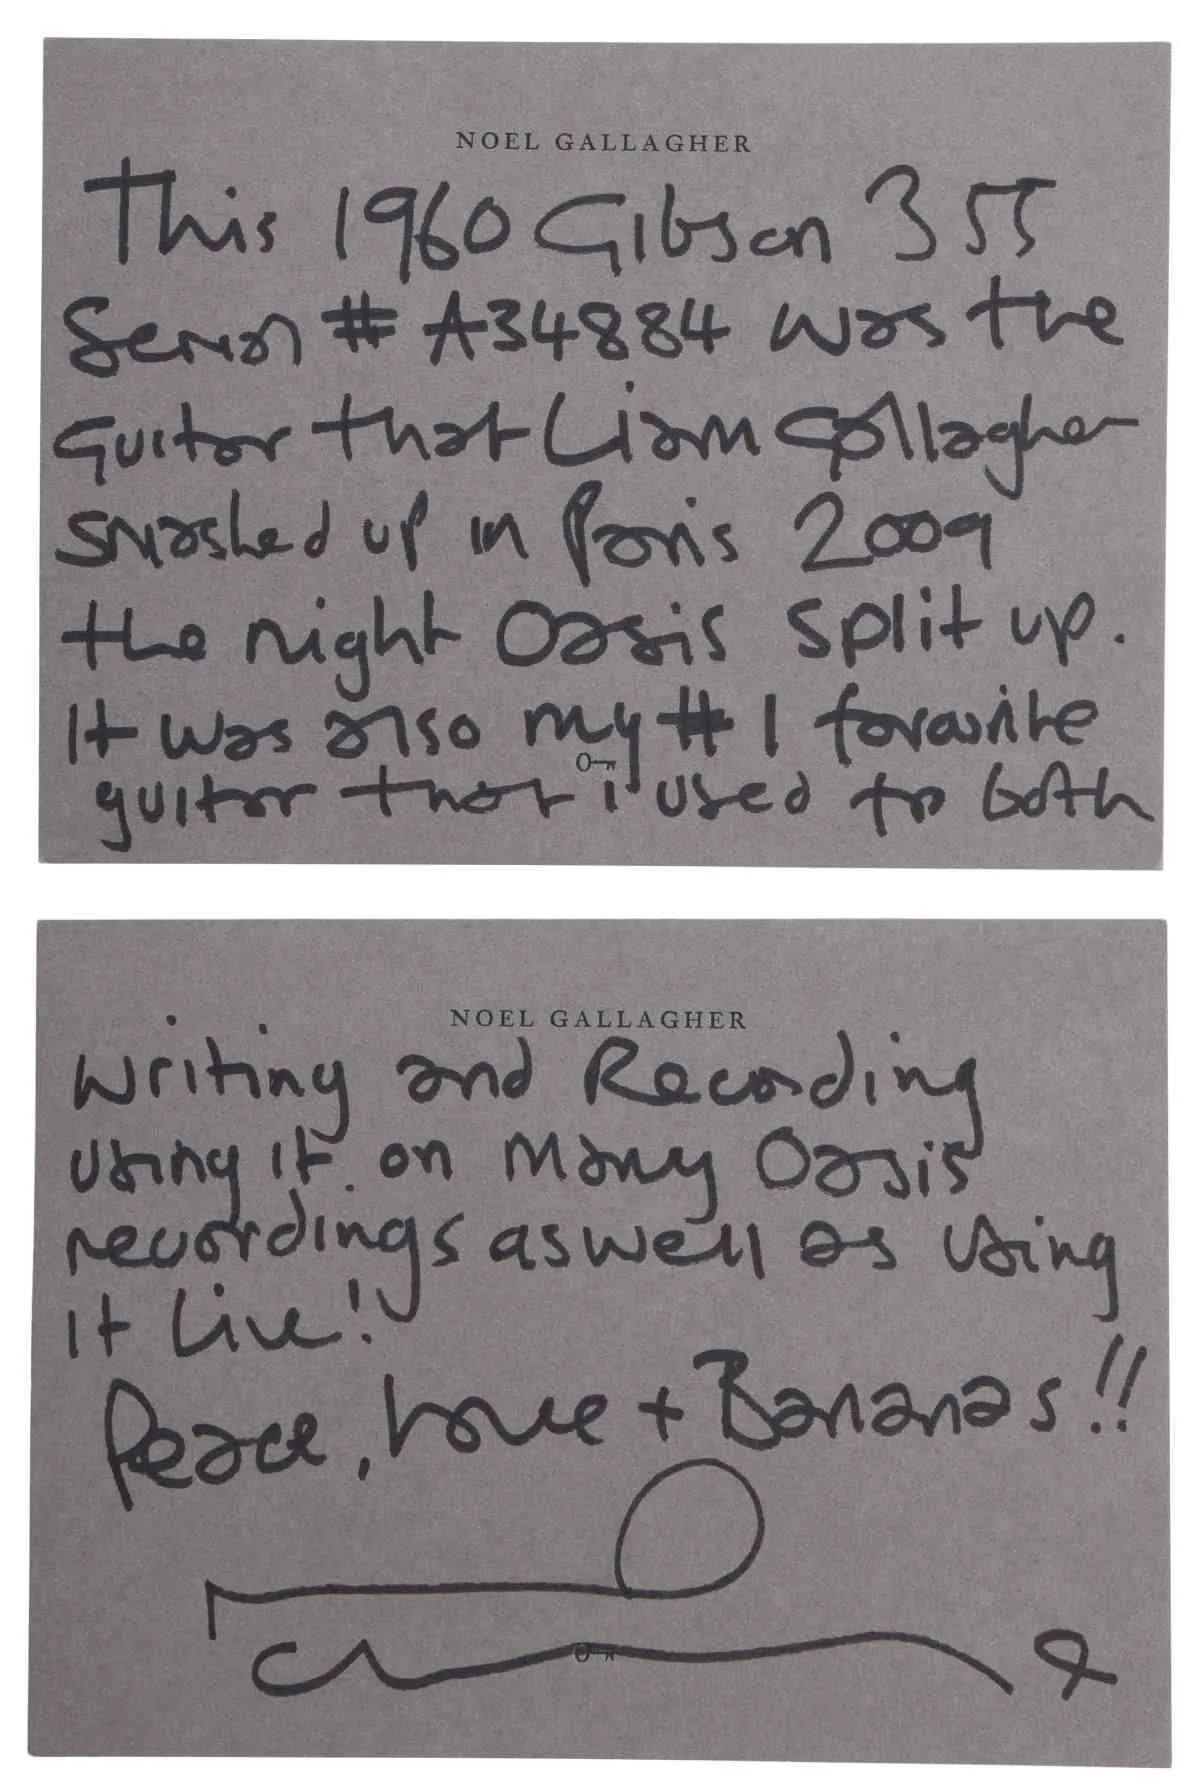 NOEL GALLAGHER
This 1960 Gibson 355
Serial # A34884 was the
Guitar that Liam Gallagher
smashed up in Paris 2009
the night Oasis split up.
It was also my # 1 favourite
guitar that i used to both
NOEL GALLAGHER
writing and Recording
using it. on many Oasis
recordings aswell as using
it Live!
Peace, Love + Bananas!!